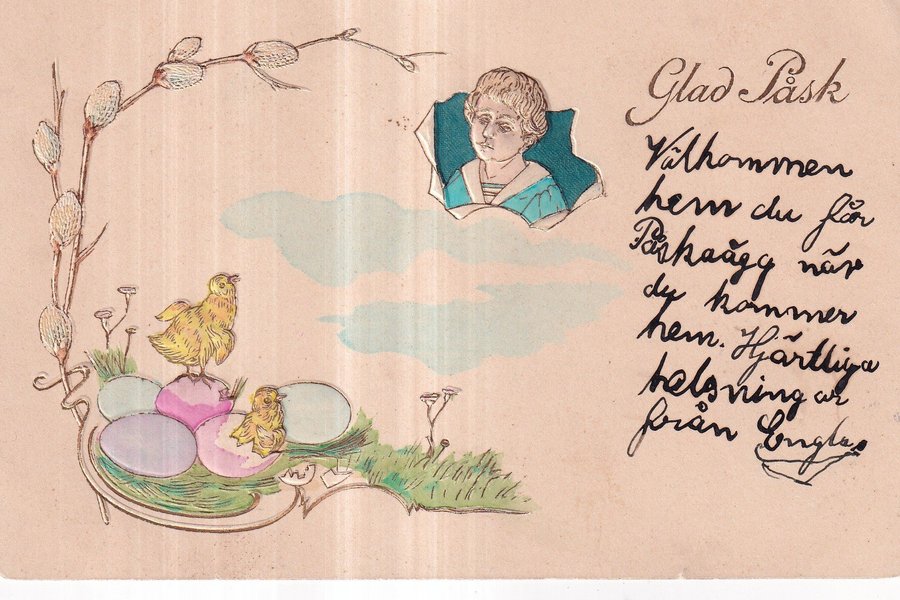 Glad Påsk
Välkommen
hem du får
Påskaägg när
du kommer
hem. Hjärtliga
helsningar
från Engla.